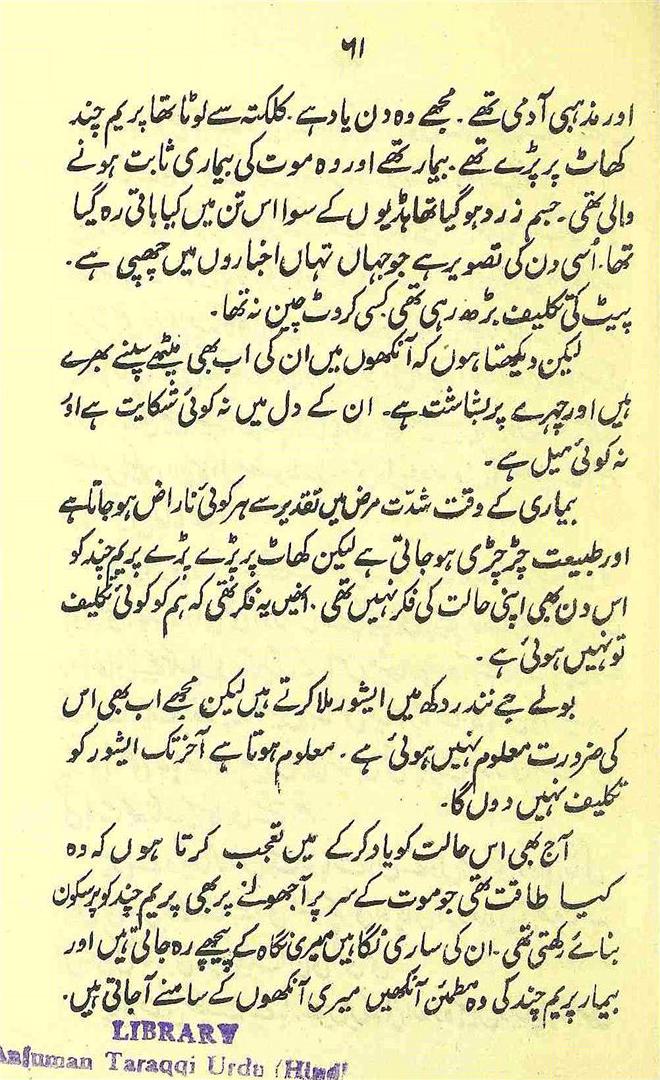 ۶۱
اور مذہبی آدمی تھے۔ مجھے وہ دن یاد ہے۔ کلکتہ سے لوٹا تھا پریم چند
کھاٹ پر پڑے تھے۔ بیمار تھے اور وہ موت کی بیماری ثابت ہونے
والی تھی۔ جسم زرد ہو گیا تھا ہڈیوں کے سوا اس تن میں کیا باقی رہ گیا
تھا۔ اُسی دن کی تصویر ہے جو جہاں تہاں اخباروں میں چھپی ہے۔
پیٹ کی تکلیف بڑھ رہی تھی کسی کروٹ چین نہ تھا۔
لیکن دیکھتا ہوں کہ آنکھوں میں ان کی اب بھی میٹھے سپنے بھرے
ہیں اور چہرے پر بشاشت ہے۔ ان کے دل میں نہ کوئی شکایت ہے اور
نہ کوئی میل ہے۔
بیماری کے وقت شدّت مرض میں تقدیر سے ہر کوئی ناراض ہو جاتا ہے
اور طبیعت چڑچڑی ہو جاتی ہے لیکن کھاٹ پر پڑے پڑے پریم چند کو
اس دن بھی اپنی حالت کی فکر نہیں تھی۔ انھیں یہ فکر تھی کہ ہم کو کوئی تکلیف
تو نہیں ہوئی ہے۔
بولے جے نندر دکھ میں ایشور ملا کرتے ہیں لیکن مجھے اب بھی اس
کی ضرورت معلوم نہیں ہوئی ہے۔ معلوم ہوتا ہے آخر تک ایشور کو
تکلیف نہیں دوں گا۔
آج بھی اس حالت کو یاد کر کے میں تعجب کرتا ہوں کہ وہ
کیا طاقت تھی جو موت کے سر پر آ جھولنے پر بھی پریم چند کو پرسکون
بنائے رکھتی تھی۔ ان کی ساری نگاہیں میری نگاہ کے پیچھے رہ جاتی ہیں اور
بیمار پریم چند کی وہ مطمئن آنکھیں میری آنکھوں کے سامنے آ جاتی ہیں۔
LIBRARY
Anjuman Taraqqi Urdu (Hind)